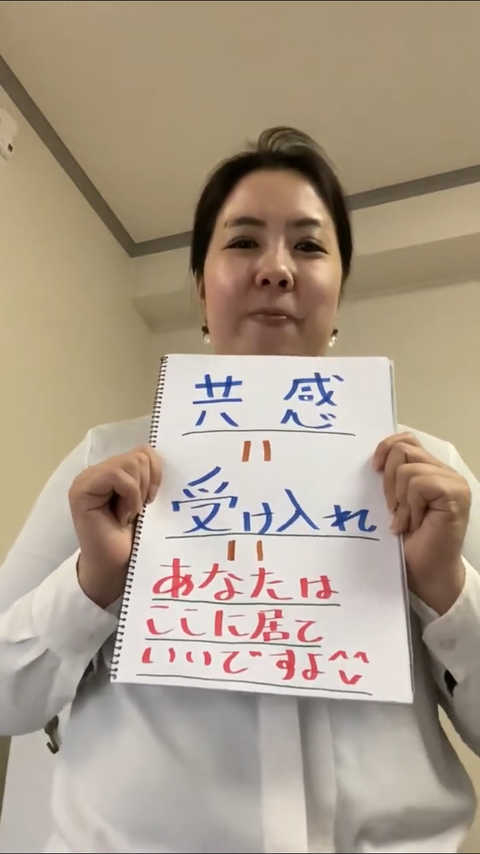 共感
=
受け入れ
=
あなたは
ここに居て
いいですよ^^